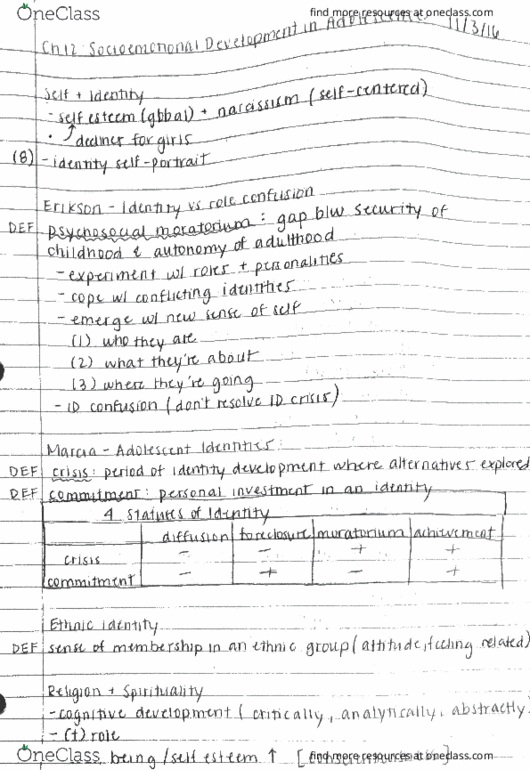 OneClass
find more resources at oneclass.com
11/3/16
Ch.12: Socioemotional Development in Adolescence
Self + Identity
- self esteem (global) + narcissism (self-centered)
• ↗ declines for girls
(8) - identity self-portrait
Erikson - Identity vs role confusion
DEF psychosocial moratorium: gap b/w security of
childhood & autonomy of adulthood
- experiment w/ roles + personalities
- cope w/ conflicting identities
- emerge w/ new sense of self
(1) who they are
(2) what they're about
(3) where they're going
- ID confusion (don't resolve ID crisis)
Marcia - Adolescent Identities:
DEF crisis: period of identity development where alternatives explored
DEF commitment: personal investment in an identity
4 statuses of Identity
diffusion foreclosure moratorium achievement
crisis - - + +
commitment - + - +
Ethnic identity
DEF sense of membership in an ethnic group (attitude, feeling related)
Religion + Spirituality
- cognitive development (critically, analytically, abstractly)
- (+) role
being/self esteem ↑ [
OneClass
find more resources at oneclass.com